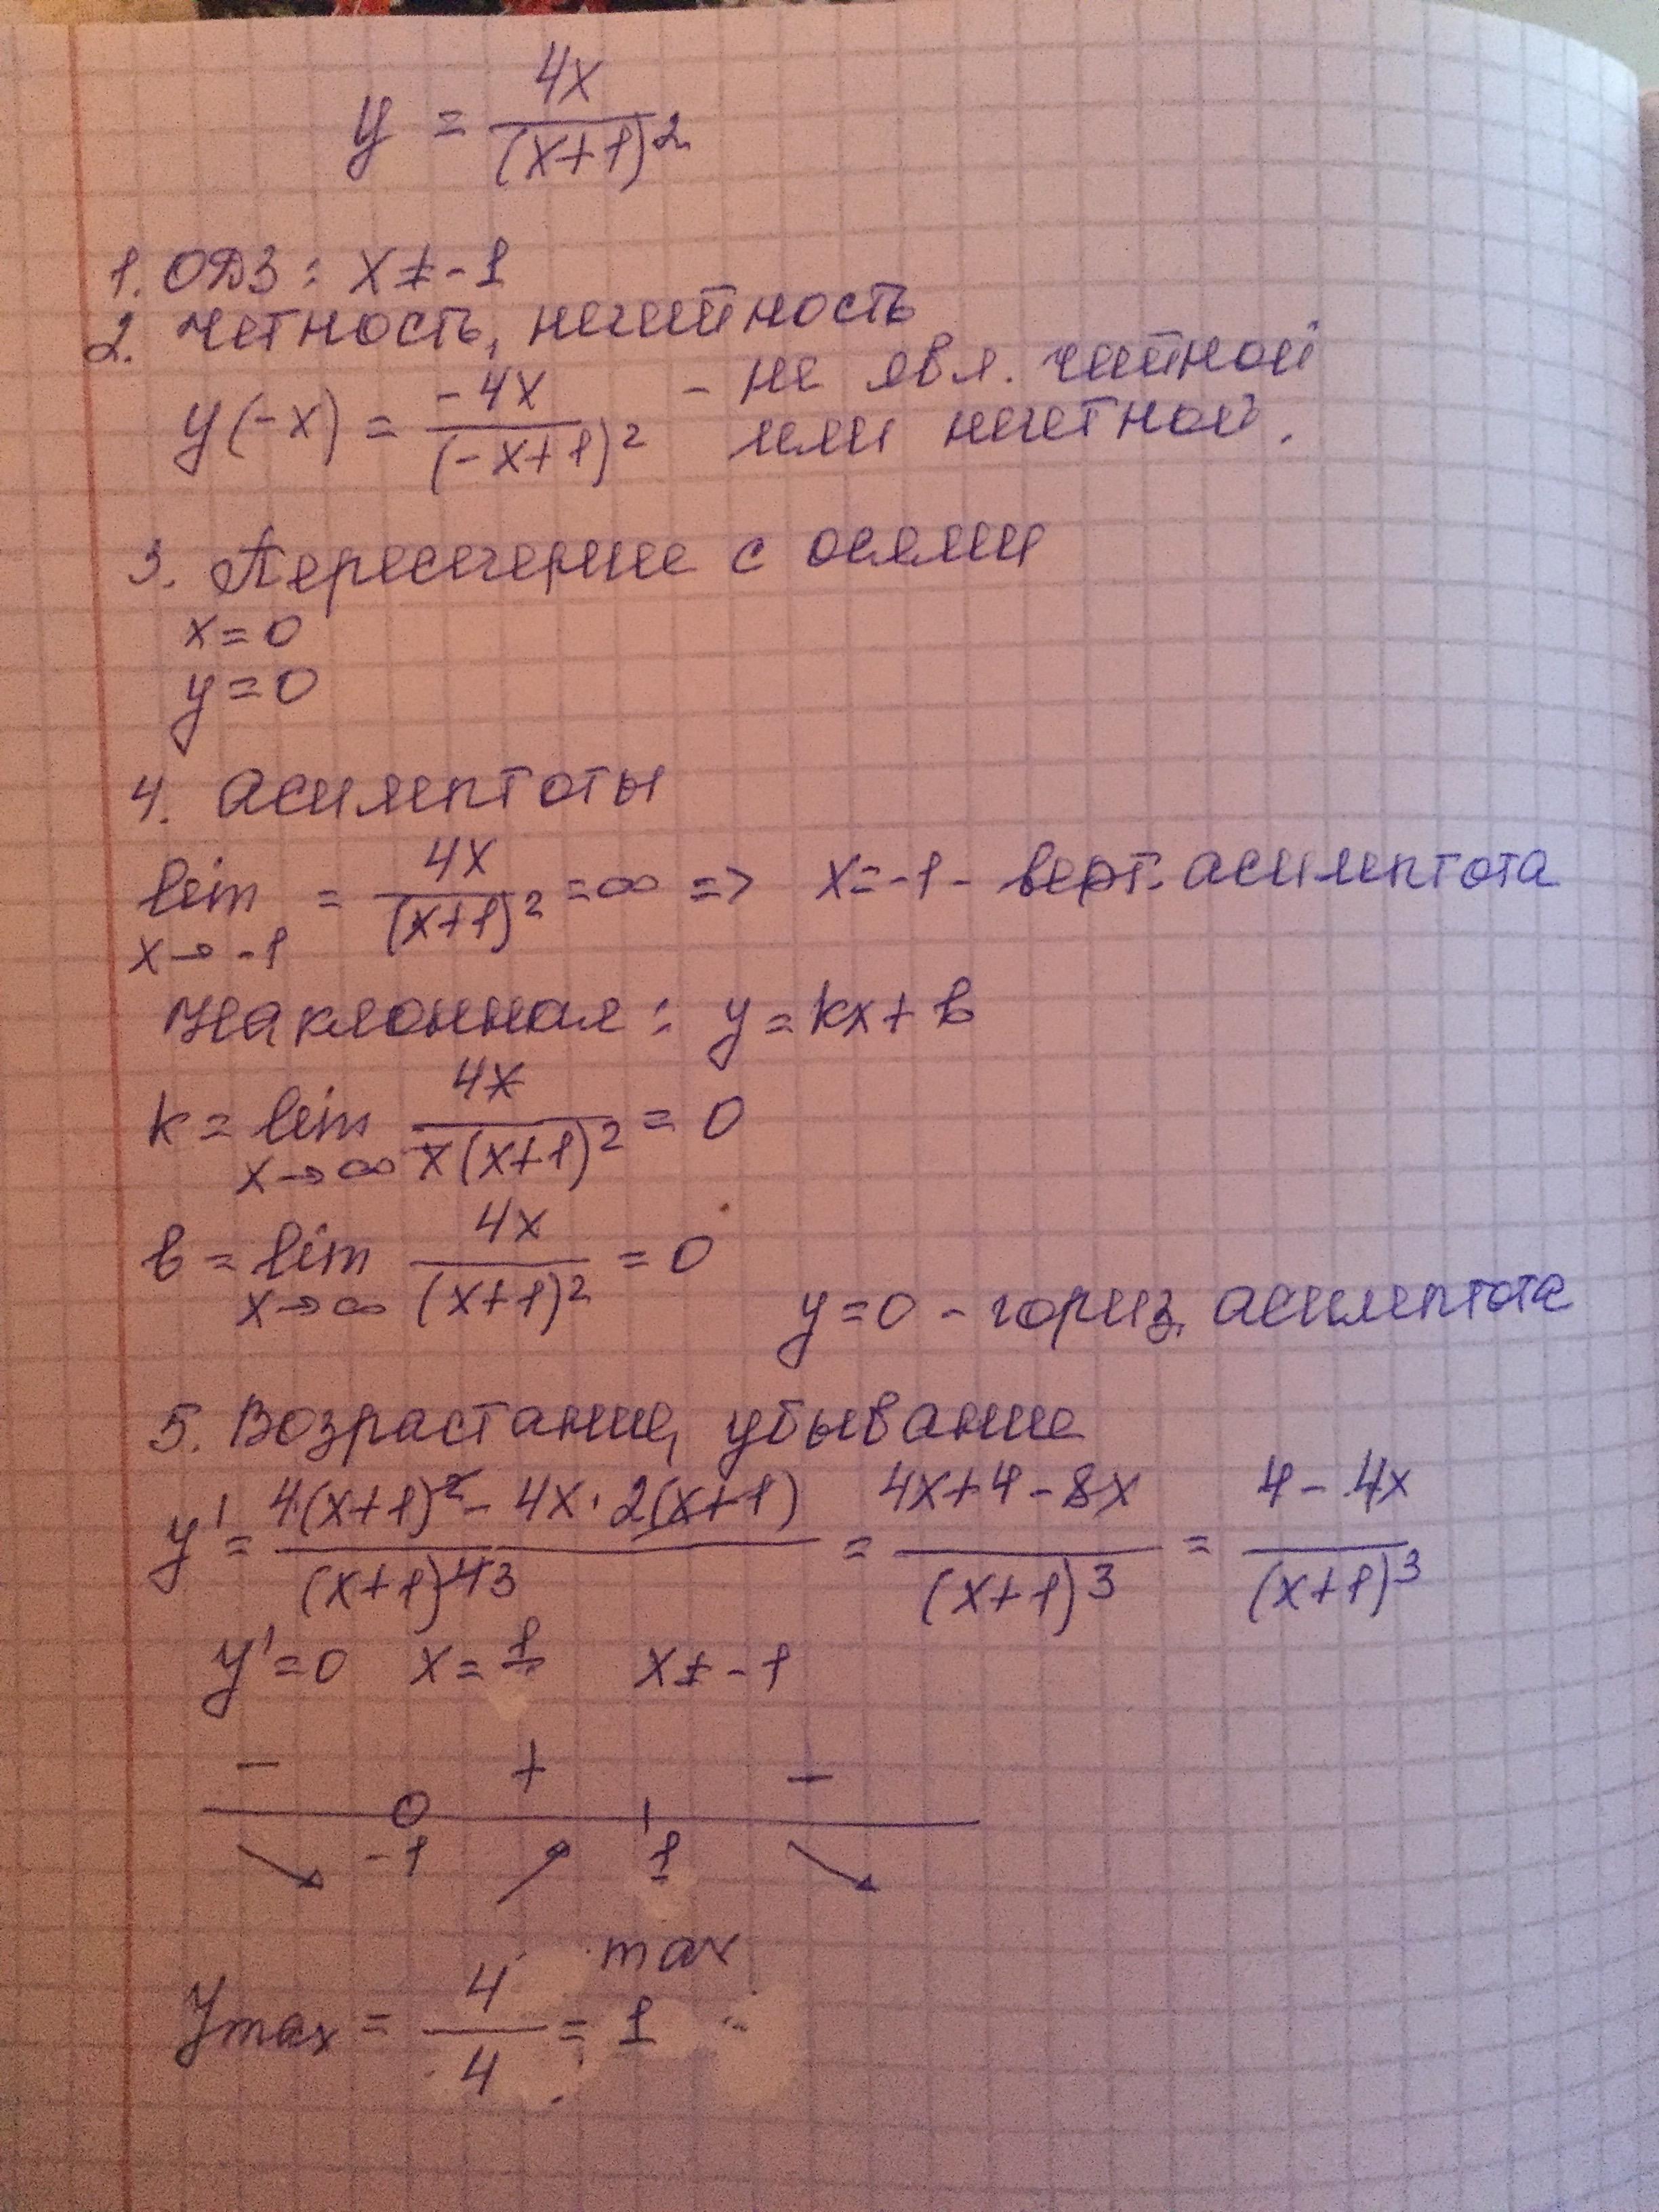 y = 4x/(x+1)²
1. ОДЗ: x ≠ -1
2. Четность, нечетность
y(-x) = -4x/(-x+1)² - не явл. четной
или нечетной.
3. Пересечение с осями
x = 0
y = 0
4. Асимптоты
lim x→-1 = 4x/(x+1)² = ∞ => x = -1 - верт. асимптота
Наклонная: y = kx + b
k = lim x→∞ 4x/x(x+1)² = 0
b = lim x→∞ 4x/(x+1)² = 0
y = 0 - гориз. асимптота
5. Возрастание, убывание
y' = 4·(x+1)² - 4x·2(x+1)/(x+1)⁴ ³ = 4x+4-8x/(x+1)³ = 4-4x/(x+1)³
y' = 0 x = 1 x ≠ -1
- + -
-1 1
max
y max = 4/4 = 1